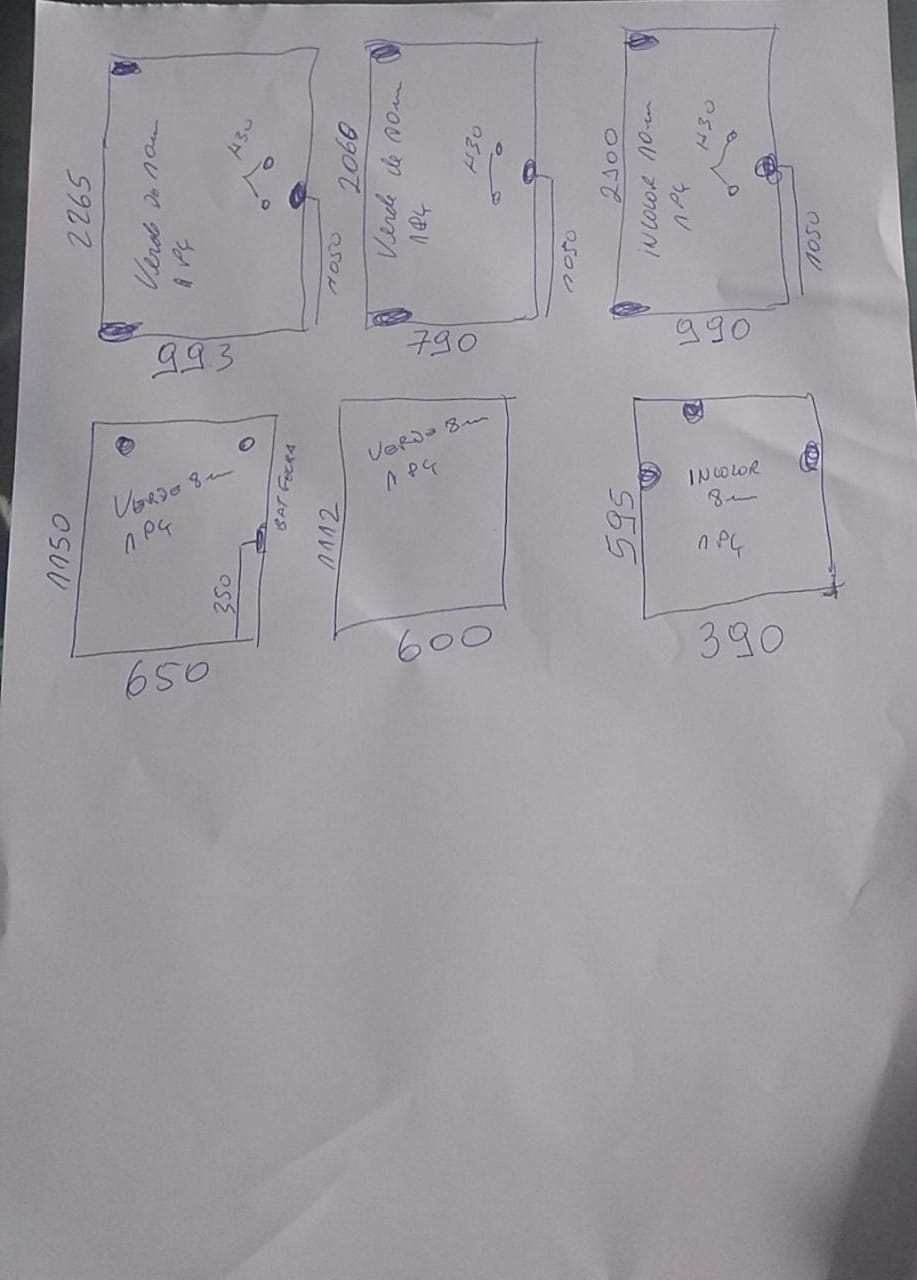 2265
Verde de 10m
1 PÇ
H30
1050
993
2060
Verde de 10m
1 PÇ
H30
1050
790
2100
INCOLOR 10m
1 PÇ
H30
1050
990
1150
VERDE 8m
1 PÇ
BAT FECHA
350
650
1112
VERDE 8m
1 PÇ
600
595
INCOLOR
8m
1 PÇ
390